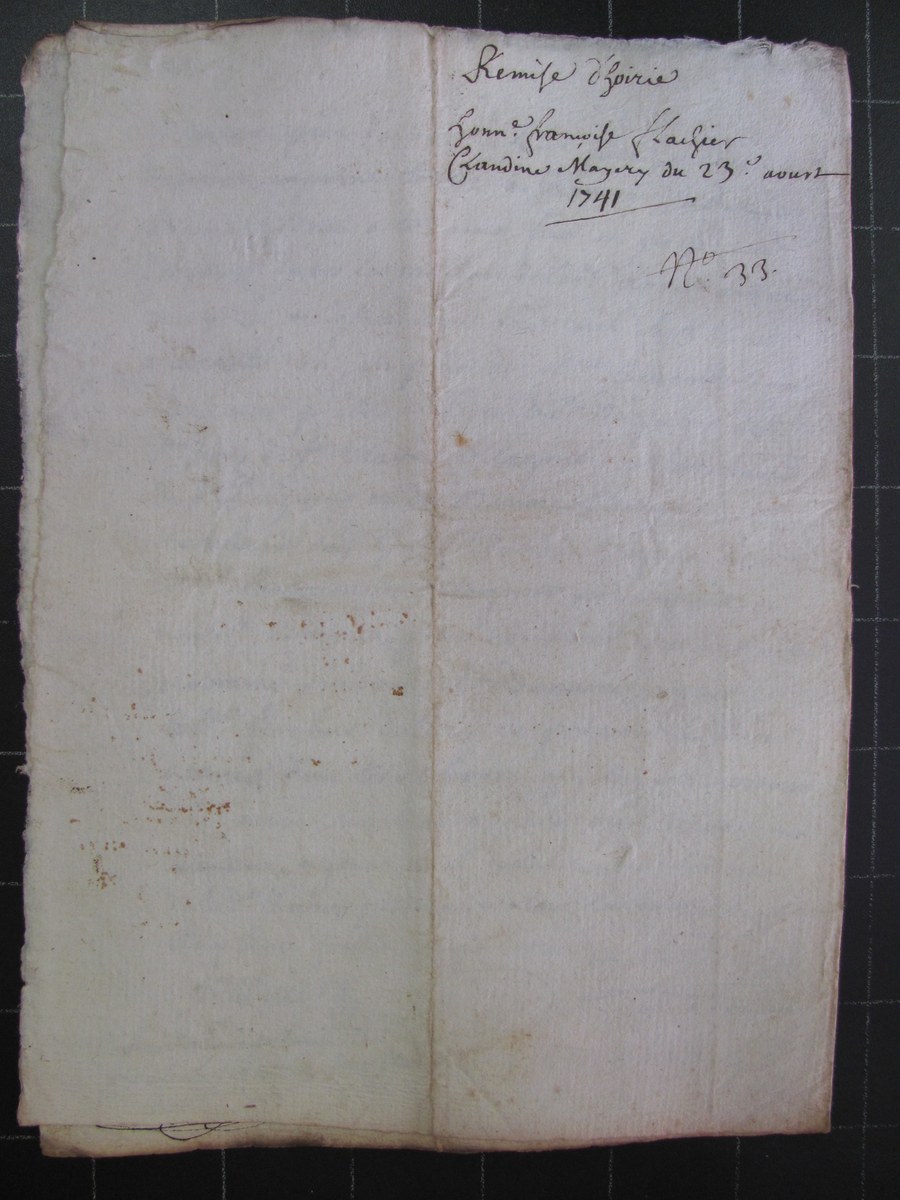 Remise d'hoirie
honn.e françoise flachier
Claudine Mayery du 23.e aoust
1741
N.o 33.